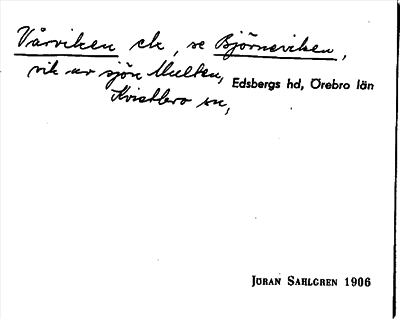 Vårviken ek, se Björneviken,
vik av sjön Multen, Edsbergs hd, Örebro län
Kvistbro sn,
JÖRAN SAHLGREN 1906